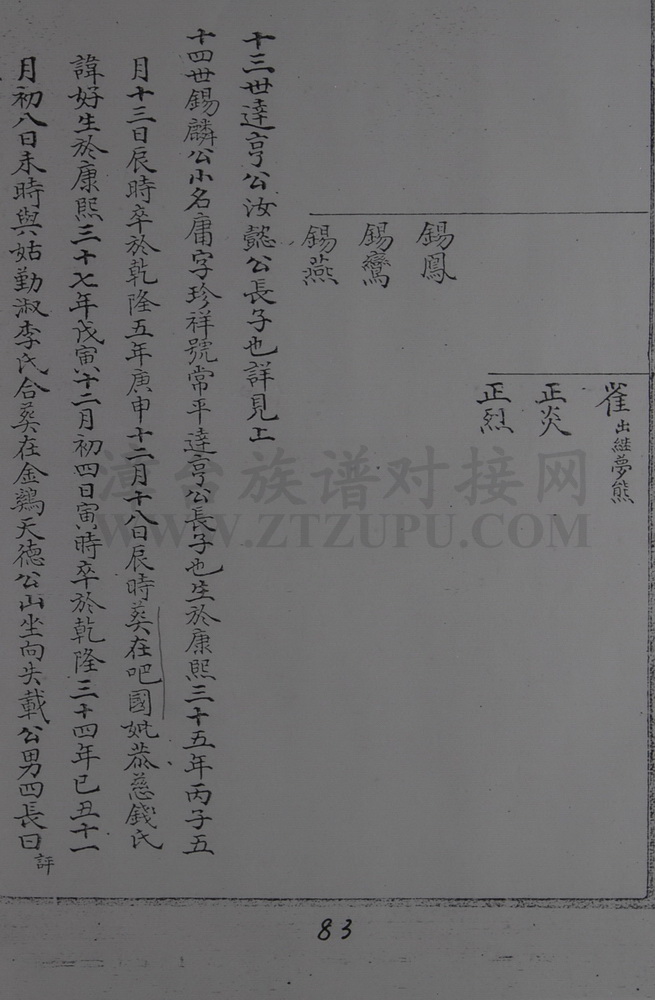 崔出継夢熊
正炎
正烈
錫鳳
錫鸞
錫燕
十三世達亨公汝懿公長子也詳見上
十四世錫麟公小名庸字珍祥號常平達亨公長子也生於康熙三十五年丙子五
月十三日辰時卒於乾隆五年庚申十二月十八日辰時葬在吧國妣恭慈錢氏
諱好生於康熙三十七年戊寅十二月初四日寅時卒於乾隆三十四年己丑十一
月初八日未時與姑勤淑李氏合葬在金鷄天德公山坐向失載公男四長曰
詳
漳台族谱对接网
WWW.ZTZUPU.COM
83